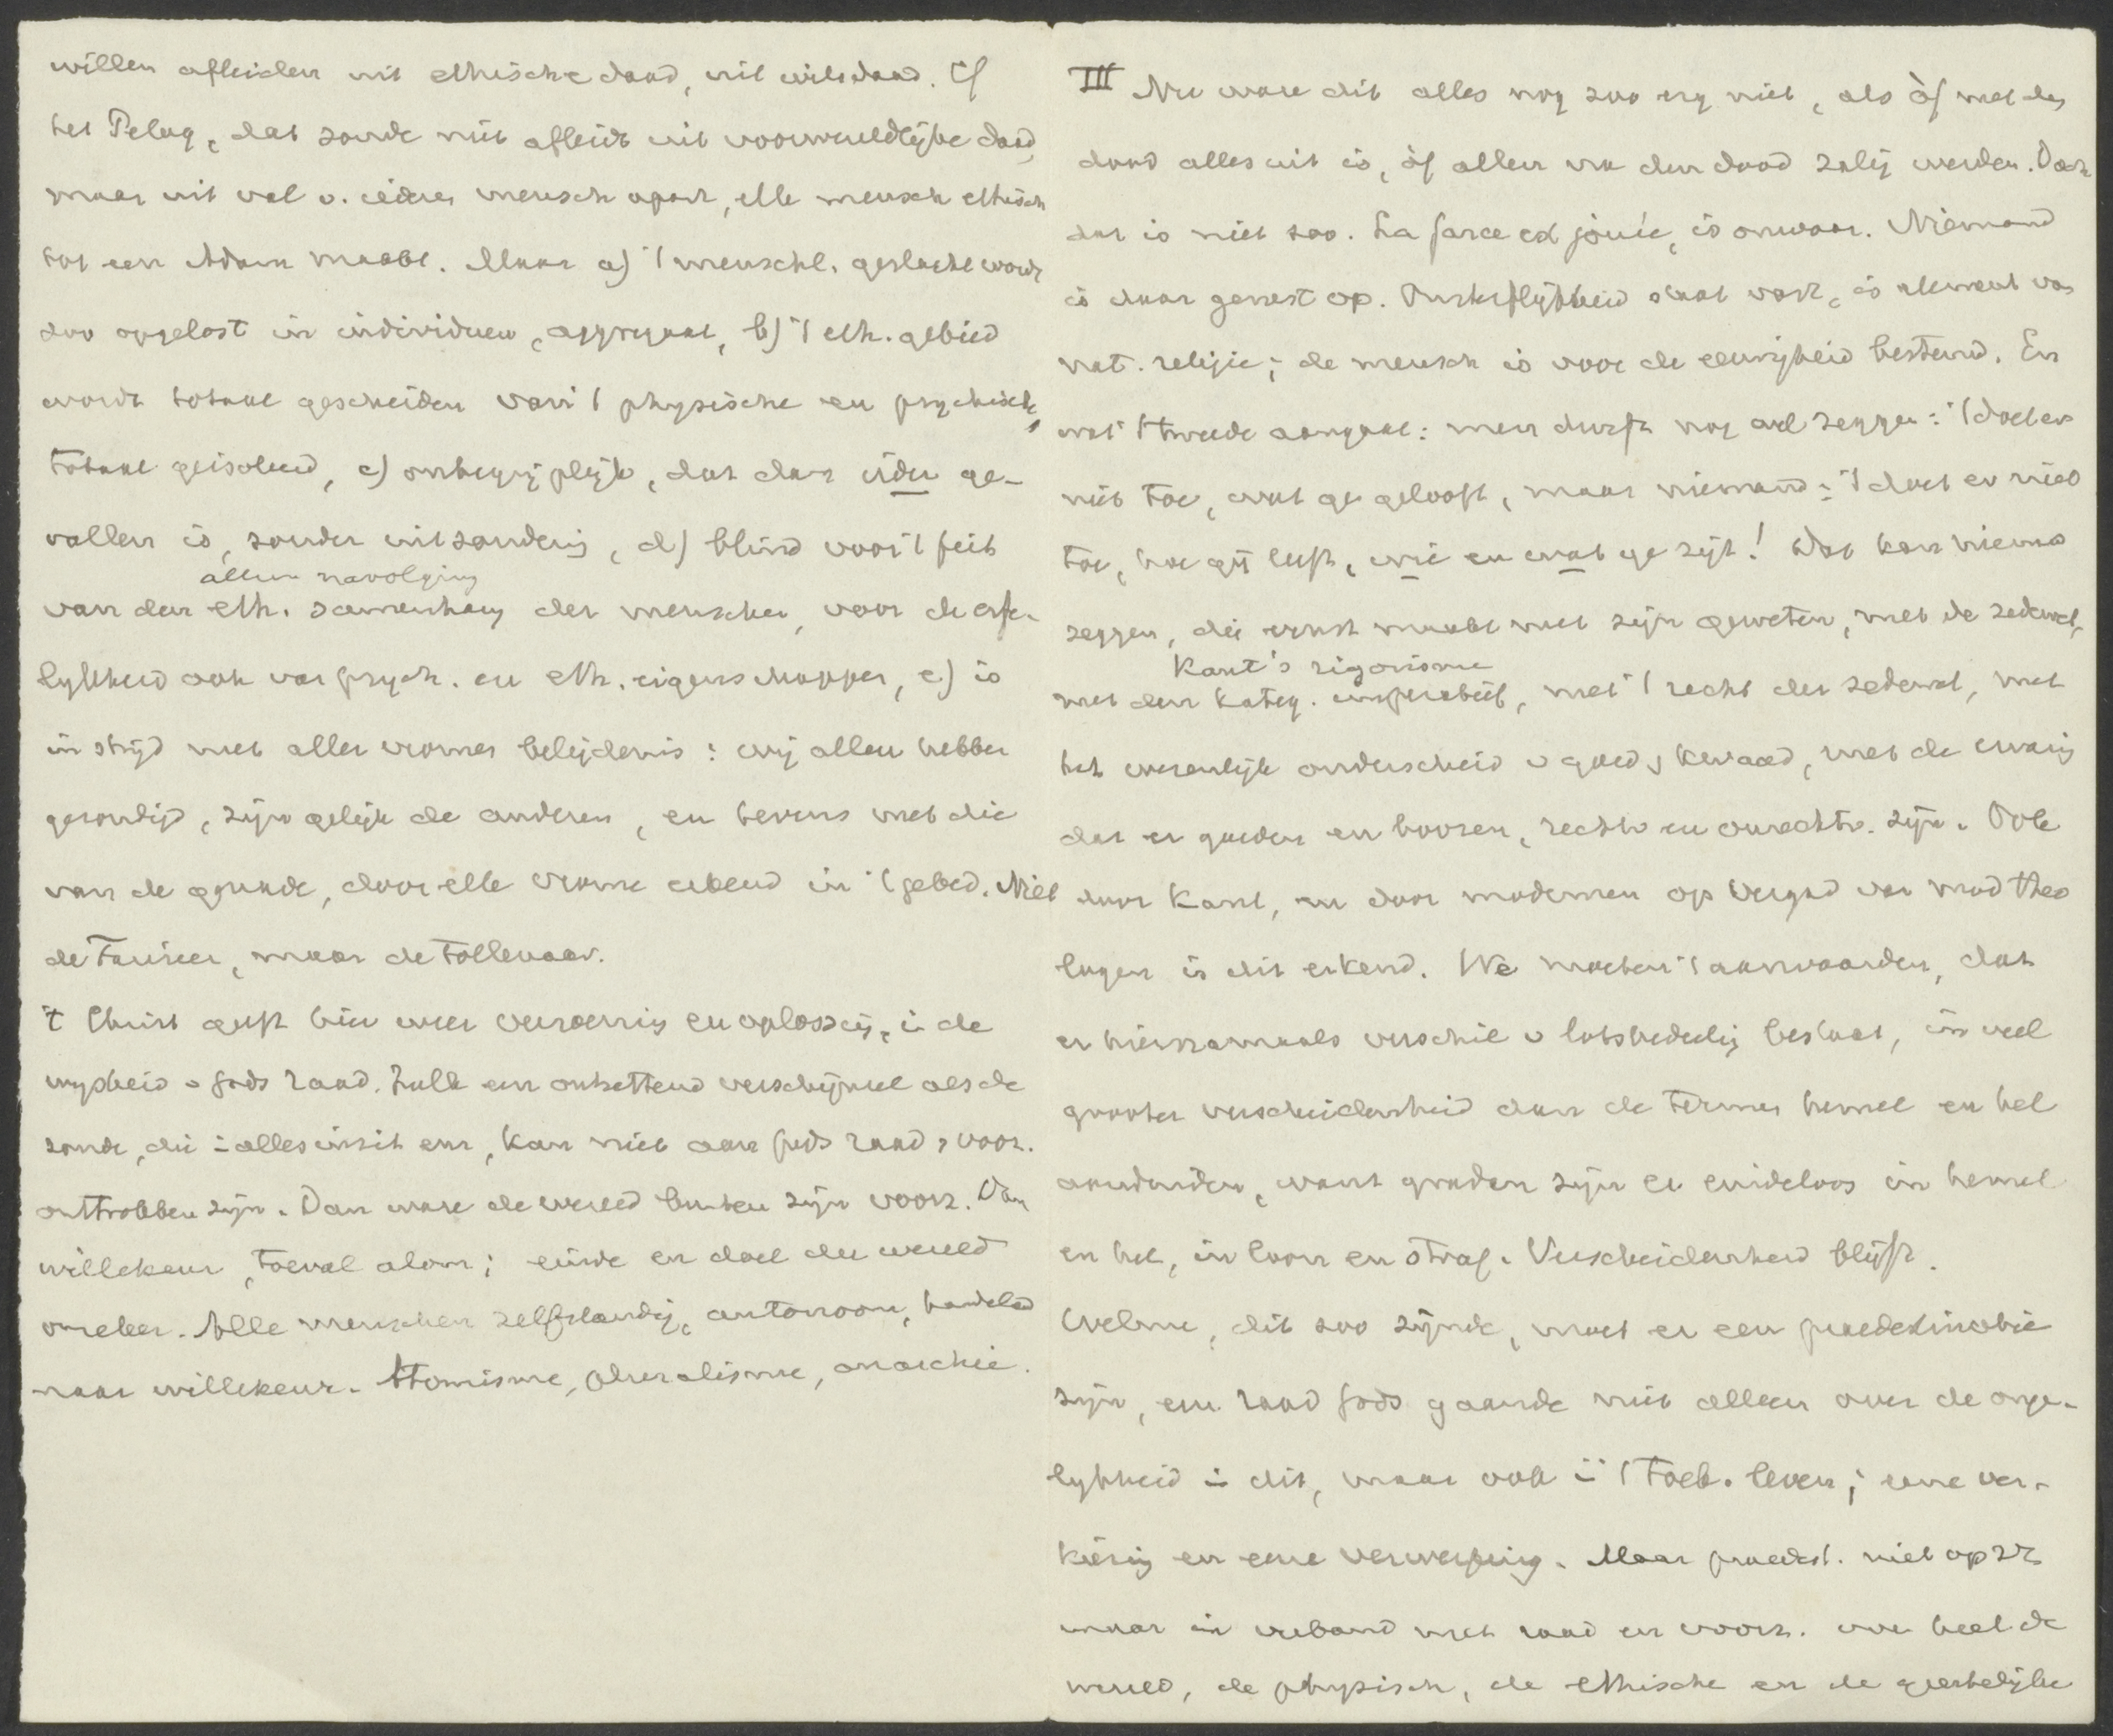 willen afleiden uit ethische daad, uit wilsdaad. Of
het Pelag., dat zonde niet afleidt uit voorwereldlijke daad,
maar uit val v. ieder mensch apart, elk mensch ethisch
tot een Adam maakt. Maar a) 't menschl. geslacht wordt
zoo opgelost in individuen, aggregaat, b) 't eth. gebied
wordt totaal gescheiden van 't physische en psychische,
totaal geisoleerd, c) onbegrijplijk, dat dan ieder ge-
vallen is, zonder uitzondering, d) blind voor 't feit
alleen navolging
van den eth. samenhang der menschen, voor de erfe-
lykheid ook van psych. en eth. eigenschappen, e) is
in strijd met aller vromer belijdenis: wij allen hebben
gezondigd, zijn gelijk de anderen, en tevens met die
van de genade, door elk vrome erkend in 't gebed. Niet
de Farizeer, maar de tollenaar.
't Christ geeft hier weer verzoening en oplossing, i. de
wysheid v Gods raad. Zulk een ontzettend verschijnsel als de
zonde, die i alles inzit enz, kan niet aan Gods raad & voorz.
onttrokken zijn. Dan ware de wereld buiten zijn voorz. Dan
willekeur, toeval alom; einde en doel der wereld
onzeker. Alle menschen zelfstandig, autonoom, handelend
naar willekeur. Atomisme, pluralisme, anarchie.
III Nu ware dit alles nog zoo erg niet, als òf met den
dood alles uit is, òf allen na den dood zalig werden. Doch
dat is niet zoo. La farce est jouée, is onwaar. Niemand
is daar gerust op. Onsterflijkheid staat vast, is element van
nat. religie; de mensch is voor de eeuwigheid bestemd. En
wat 't tweede aangaat: men durft nog wel zeggen: 't doet er
niet toe, wat ge gelooft, maar niemand: 't doet er niet
toe, hoe gij leeft, wie en wat ge zijt! Dat kan niemand
zeggen, die ernst maakt met zijn geweten, met de zedewet,
Kant's rigorisme
met den kateg. imperatief, met 't recht der zedewet, met
het wezenlijk onderscheid v goed & kwaad, met de ervaring
dat er goeden en boozen, rechtv en onrechtv. zijn. Ook
door Kant, en door modernen op vergad van mod theo
logen is dit erkend. We moeten 't aanvaarden, dat
er hiernamaals verschil v lotsbedeeling bestaat, in veel
grooter verscheidenheid dan de termen hemel en hel
aanduiden, want graden zijn er eindeloos in hemel
en hel, in loon en straf. Verscheidenheid blijft.
Welnu, dit zoo zijnde, moet er een praedestinatie
zijn, een raad Gods gaande niet alleen over de onge-
lykheid in dit, maar ook i 't toek. leven; eene ver-
kiezing en eene verwerping. Maar praedest. niet op zich
maar in verband met raad en voorz. over heel de
wereld, de physisch, de ethische en de geestelijke